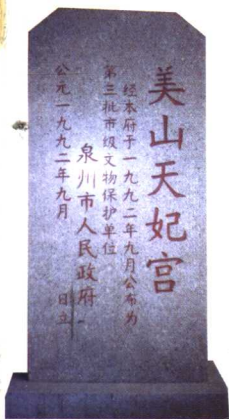 美山天妃宫
经本府于一九九二年九月公布为
第三批市级文物保护单位
泉州市人民政府
公元一九九二年九月 日立